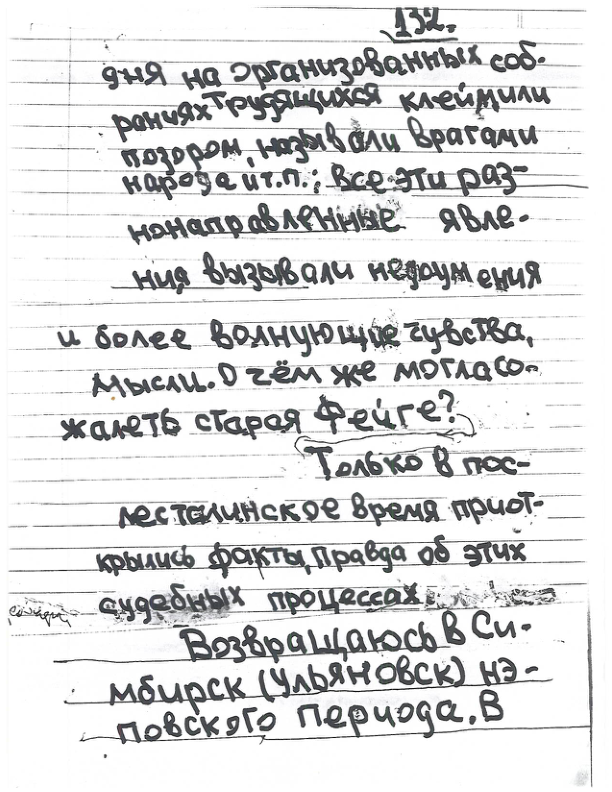 132.
дня на организованных соб-
раниях трудящихся клеймили
позором, называли врагами
народа и т.п.; все эти раз-
нонаправленные явле-
ния вызывали недоумения
и более волнующие чувства,
мысли. О чём же могла со-
жалеть старая Фейге?
Только в пос-
лесталинское время приот-
крылись факты, правда об этих
судебных процессах.
Возвращаюсь в Си-
мбирск (Ульяновск) нэ-
повского периода. В